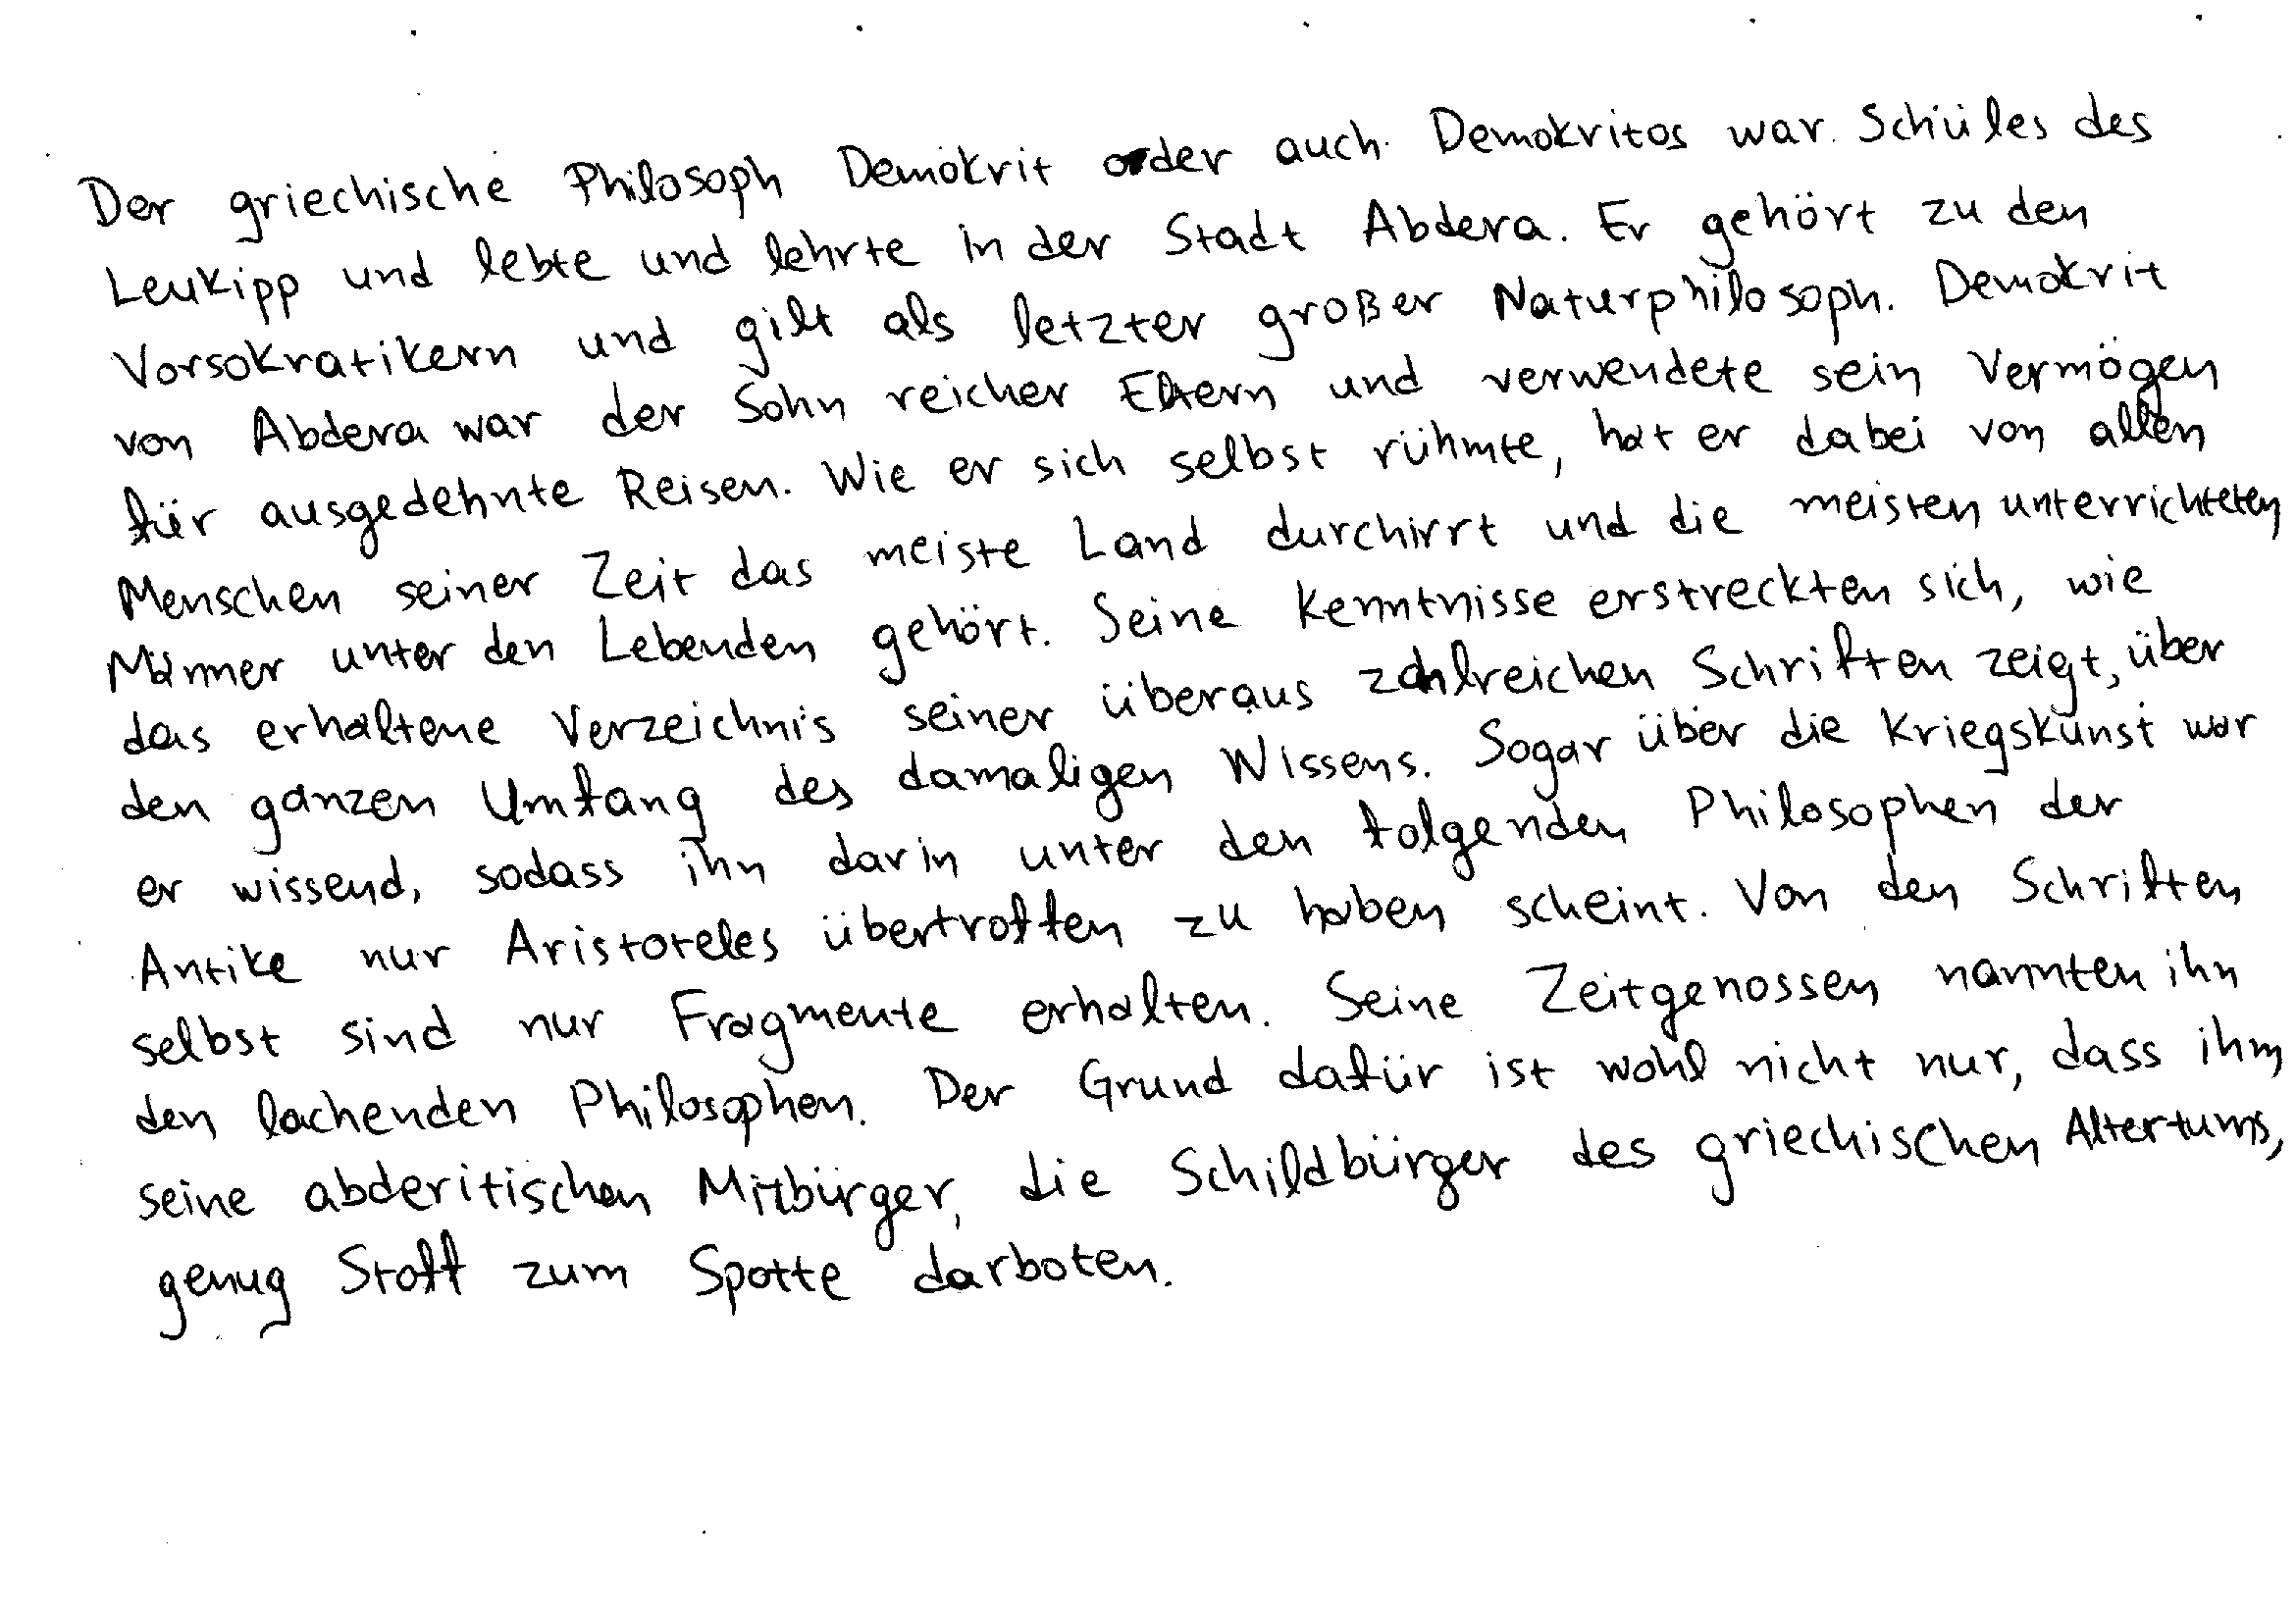 Der griechische Philosoph Demokrit oder auch Demokritos war Schüles des
Leukipp und lebte und lehrte in der Stadt Abdera. Er gehört zu den
Vorsokratikern und gilt als letzter großer Naturphilosoph. Demokrit
von Abdera war der Sohn reicher Eltern und verwendete sein Vermögen
für ausgedehnte Reisen. Wie er sich selbst rühmte, hat er dabei von allen
Menschen seiner Zeit das meiste Land durchirrt und die meisten unterrichteten
Männer unter den Lebenden gehört. Seine Kenntnisse erstreckten sich, wie
das erhaltene Verzeichnis seiner überaus zahlreichen Schriften zeigt, über
den ganzen Umfang des damaligen Wissens. Sogar über die Kriegskunst war
er wissend, sodass ihn darin unter den folgenden Philosophen der
Antike nur Aristoteles übertroffen zu haben scheint. Von den Schriften
selbst sind nur Fragmente erhalten. Seine Zeitgenossen nannten ihn
den lachenden Philosophen. Der Grund dafür ist wohl nicht nur, dass ihm
seine abderitischen Mitbürger, die Schildbürger des griechischen Altertums,
genug Stoff zum Spotte darboten.